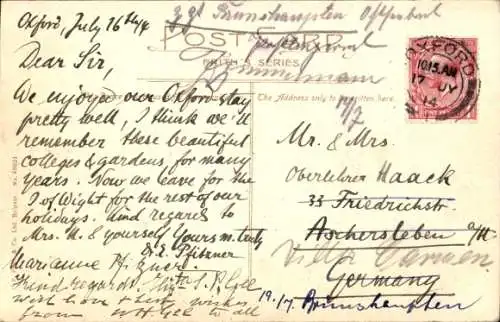 Oxford, July 16th 14
z. Zt. Brunshaupten Ostseebad
POST CARD
FRITH'S SERIES
Dear Sir,
We enjoyed our Oxford stay
pretty well, I think we'll
remember these beautiful
colleges & gardens, for many
years. Now we leave for the
I. of Wight for the rest of our
holidays. Kind regards to
Mrs. H. & yourself Yours m. truly
E. Pfitzner
Marianne Pfitzner
Kind regards
with love & best wishes
from WHGee to all
The Address only to be written here.
OXFORD
10.15 AM
17 JY
14
Mr. & Mrs.
Oberlehrer Haack
33 Friedrichstr.
Aschersleben a/H
Villa Carmen
Germany
19./7. Brunshaupten